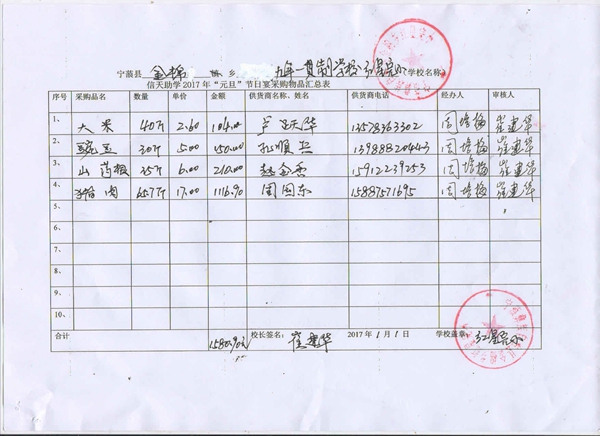 宁蒗县 金棉 乡 九年一贯制学校 红星完小 (学校名称)
信天助学 2017 年“元旦”节日宴采购物品汇总表
序号 采购品名 数量 单价 金额 供货商名称、姓名 供货商电话 经办人 审核人
1、 大米 40斤 2.60 104.00 13578363302 周培梅 崔建华
2、 豌豆 30斤 5.00 150.00 孔顺兵 13988820443 周培梅 崔建华
3、 山药根 35斤 6.00 210.00 赵金香 15912239253 周培梅 崔建华
4、 猪肉 65.7斤 17.00 1116.90 周国东 15887571695 周培梅 崔建华
5、
6、
7、
8、
9、
10、
合计 1580.90元 校长签名: 崔建华 2017 年 1 月 1 日 学校盖章: 红星完小